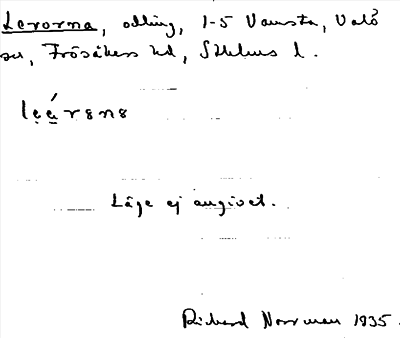 Lerorna, odling, 1-5 Vamsta, Valö
sn, Frösåkers hd, Sthlms l.
Läge ej angivet.
Richard Norrman 1935.